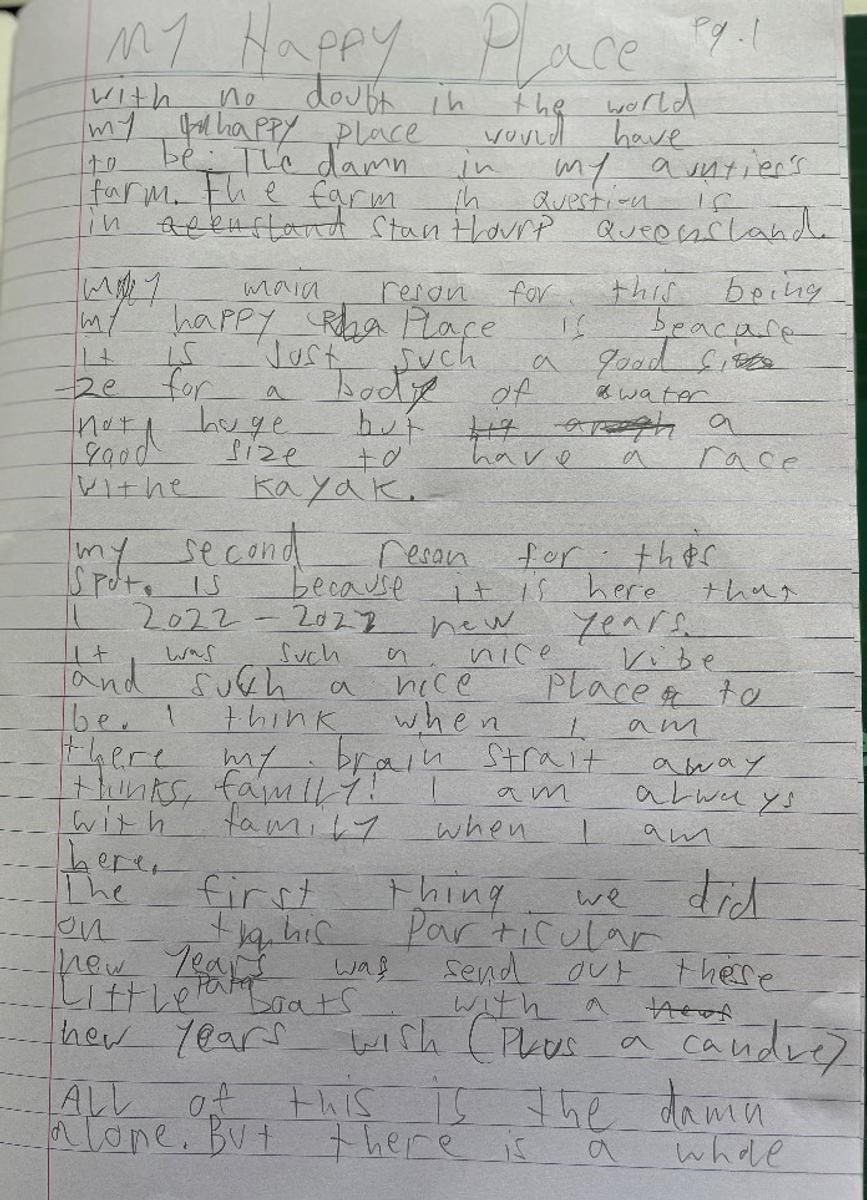 My Happy Place Pg.1
with no doubt in the world
my happy place would have
to be. The damn in my aunties's
farm. The farm in question is
in Stanthourp Queensland.
my main reson for this being
my happy Place is beacase
it is Just such a good si
-ze for a body of water
not huge but a
good size to have a race
withe kayak.
my second reson for this
spot. is because it is here that
I 2022-2022 new years.
it was such a nice vibe
and such a nice place to
be. I think when I am
there my brain strait away
thinks, family! I am always
with family when I am
here.
The first thing we did
on this Particular
new years was send out these
Little boats with a
new years wish (Plus a candle)
ALL of this is the damn
alone. But there is a whole